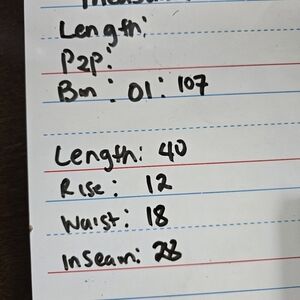 Length:
P2P:
Bm: 01: 107
Length: 40
Rise: 12
Waist: 18
Inseam: 28